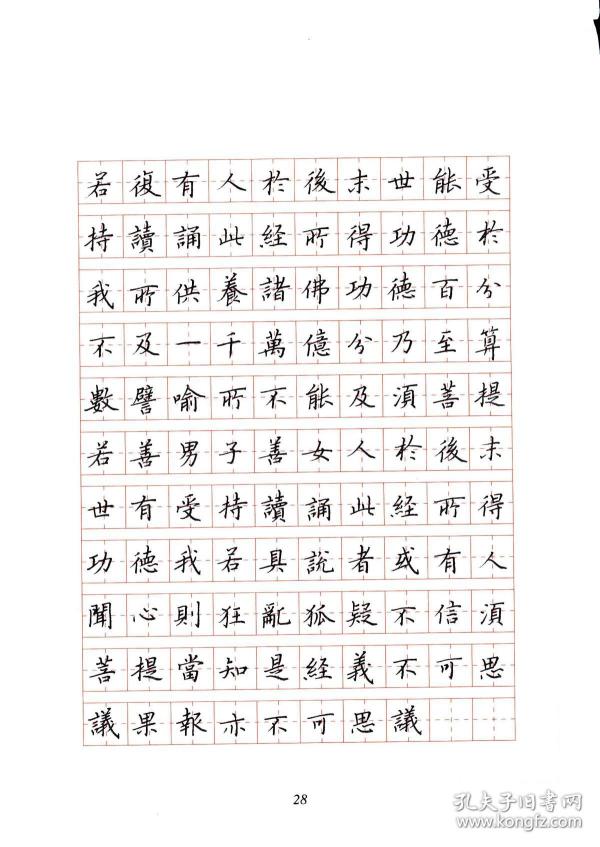 若復有人於後末世能受
持讀誦此経所得功德於
我所供養諸佛功德百分
不及一千萬億分乃至算
數譬喻所不能及須菩提
若善男子善女人於後末
世有受持讀誦此経所得
功德我若具說者或有人
聞心則狂亂狐疑不信須
菩提當知是経義不可思
議果報亦不可思議
28
孔夫子旧书网
www.kongfz.com